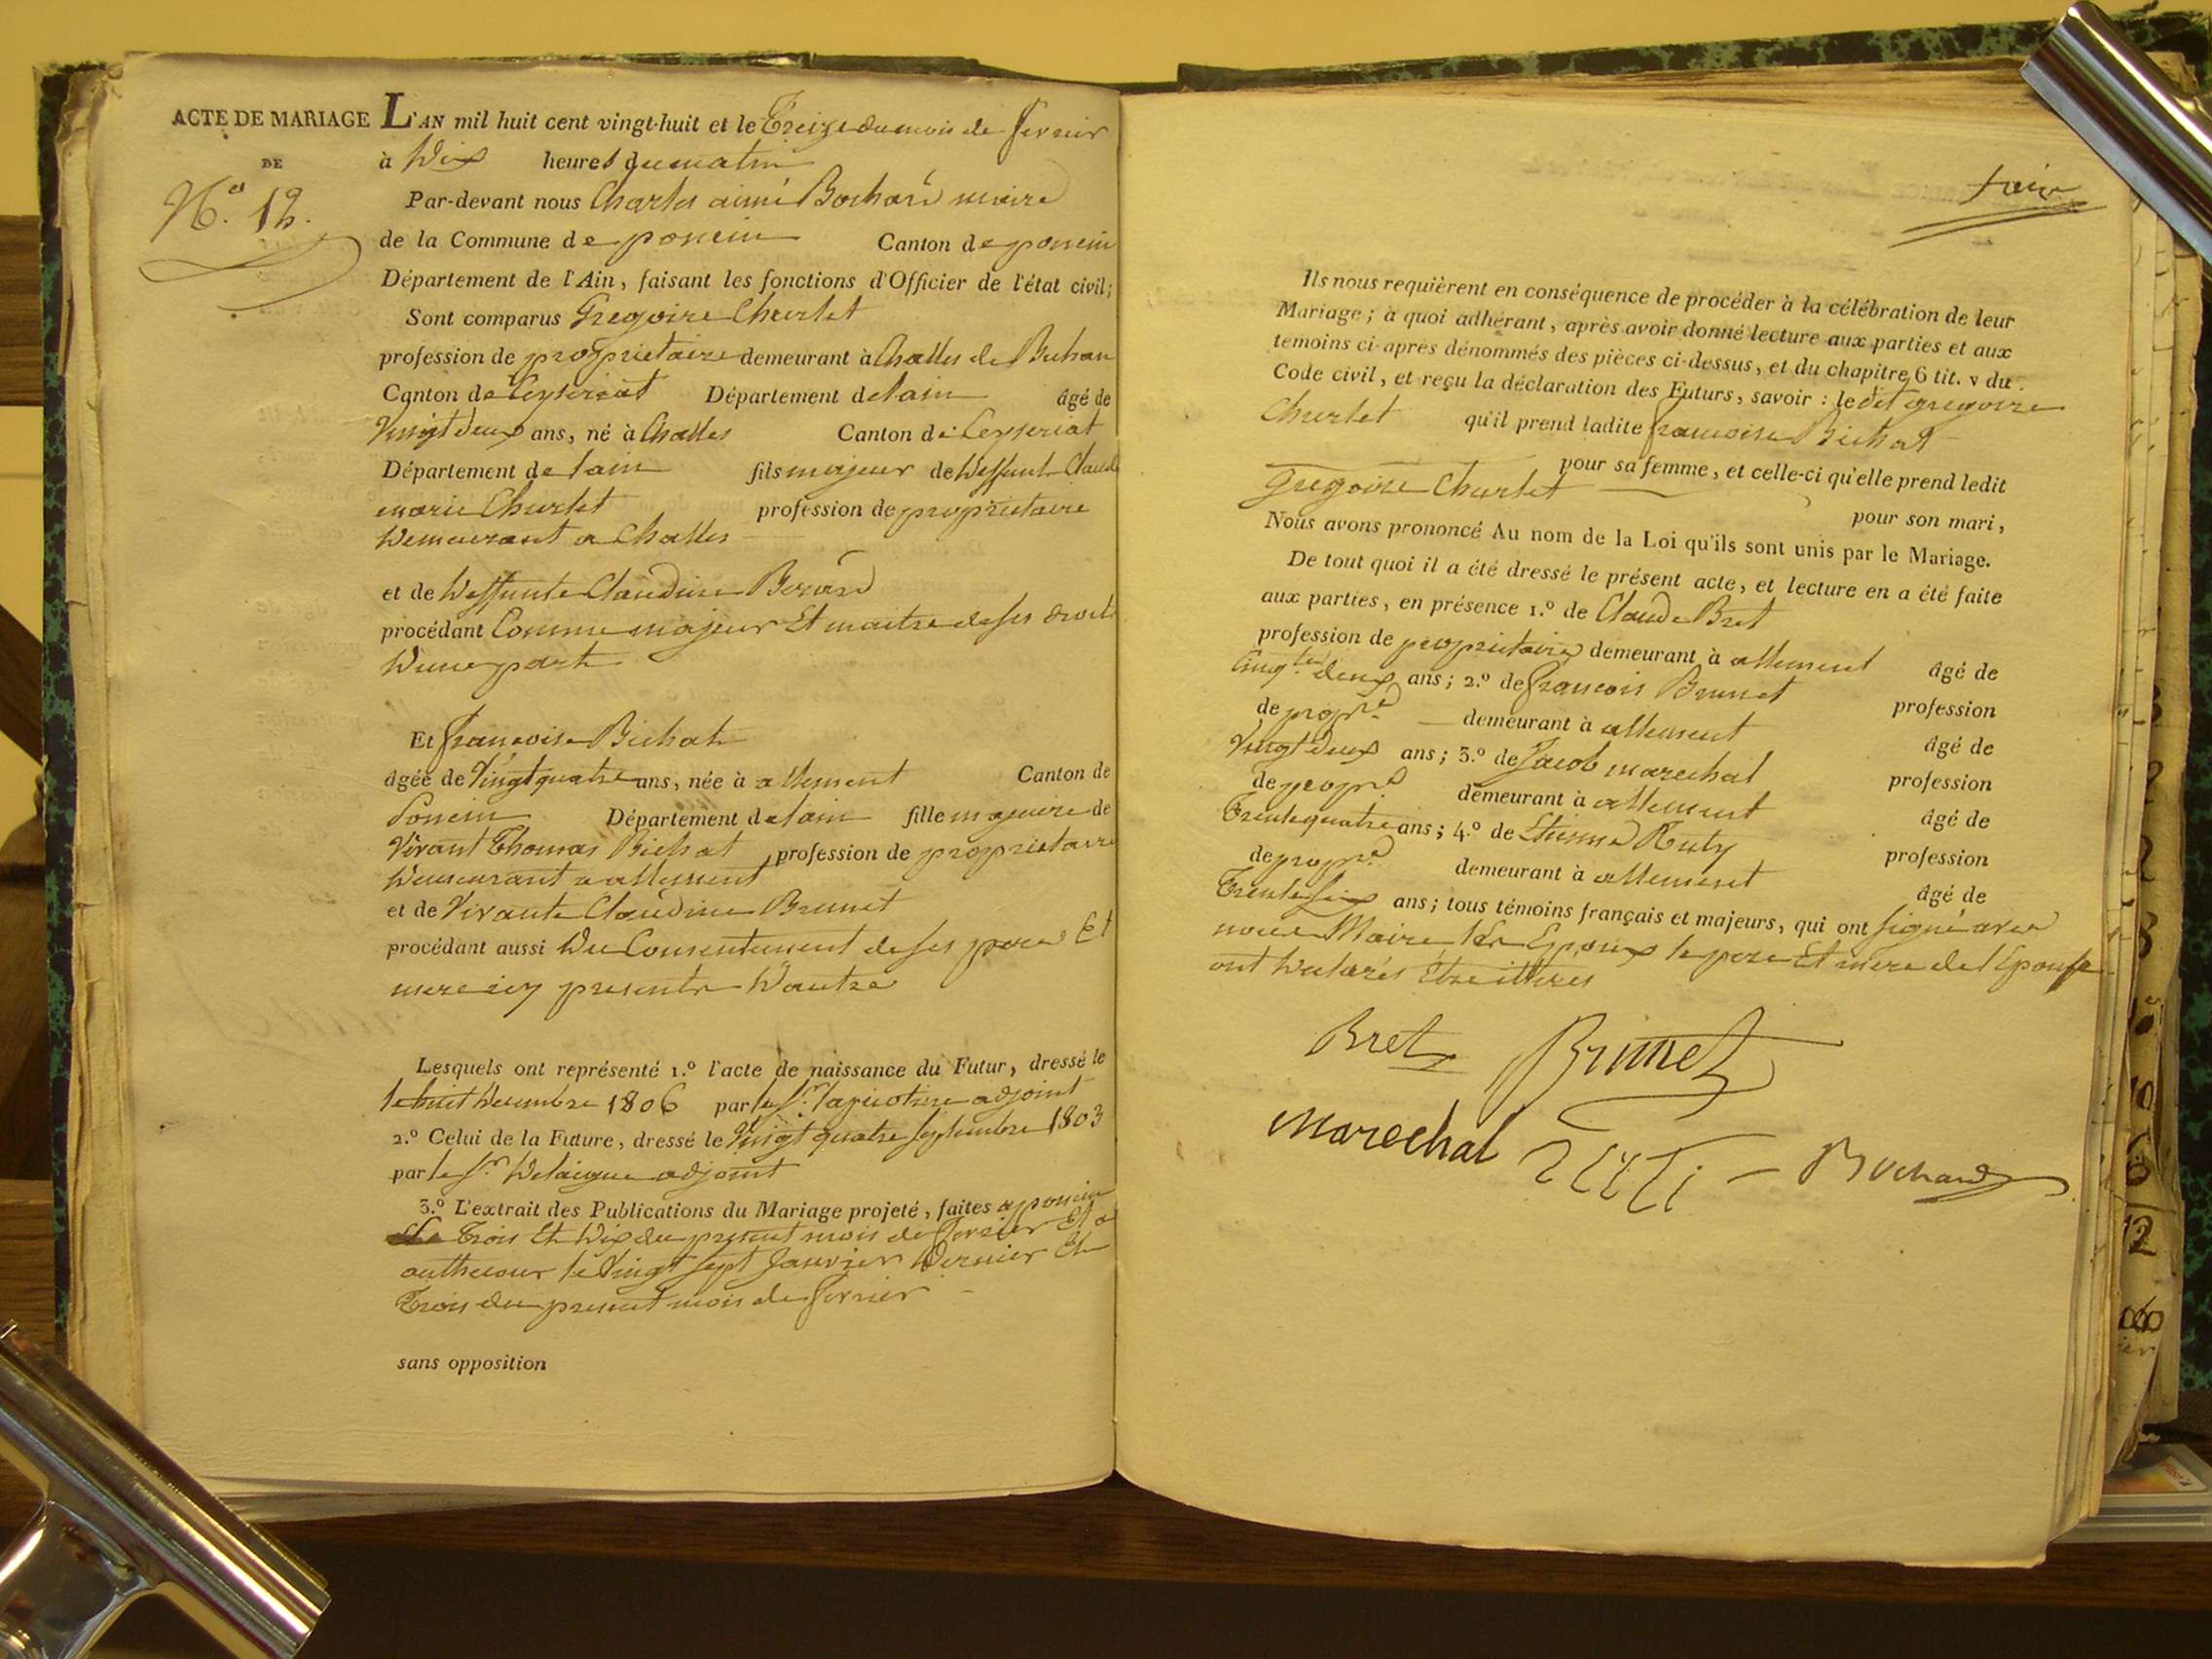 ACTE DE MARIAGE
DE
N.o 12.
L'AN mil huit cent vingt-huit et le Treize du mois de fevrier
à Dix heures du matin
Par-devant nous Charles aimé Bochard maire
de la Commune de poncin Canton de poncin
Département de l'Ain, faisant les fonctions d'Officier de l'état civil;
Sont comparus Gregoire Churlet
profession de proprietaire demeurant à Challes de Bohan
Canton de Ceyseriat Département de lain âgé de
Vingt deux ans, né à Challes Canton de Ceyseriat
Département de lain fils majeur de Deffunt Claude
marie Churlet profession de proprietaire
Demeurant a Challes
et de Deffunte Claudine Berard
procédant Comme majeur Et maitre de ses droits
Dune part
Et francoise Bichat
âgée de Vingt quatre ans, née à allement Canton de
Poncin Département de lain fille majeure de
Vivant Thomas Bichat profession de proprietaire
Demeurant a allement
et de Vivante Claudine Brunet
procédant aussi Du Consentement de ses pere Et
mere icy presents Dautre
Lesquels ont représenté 1.o l'acte de naissance du Futur, dressé le
le huit Decembre 1806 par le Sr. lapierotiere adjoint
2.o Celui de la Future, dressé le Vingt quatre septembre 1803
par le Sr. Delaigue adjoint
3.o L'extrait des Publications du Mariage projeté, faites a poncin
Trois Et Dix du present mois de fevrier Et a
authecour le Vingt sept Janvier Dernier Et
Trois du present mois de fevrier
sans opposition
Ils nous requièrent en conséquence de procéder à la célébration de leur
Mariage; à quoi adhérant, après avoir donné lecture aux parties et aux
témoins ci-après dénommés des pièces ci-dessus, et du chapitre 6 tit. v du
Code civil, et reçu la déclaration des Futurs, savoir : le dit gregoire
Churlet qu'il prend ladite francoise Bichat
pour sa femme, et celle-ci qu'elle prend ledit
Gregoire Churlet pour son mari,
Nous avons prononcé Au nom de la Loi qu'ils sont unis par le Mariage.
De tout quoi il a été dressé le présent acte, et lecture en a été faite
aux parties, en présence 1.o de Claude Bret
profession de proprietaire demeurant à allement âgé de
Cinqte deux ans; 2.o de francois Brunet profession
de propre. demeurant à allement âgé de
Vingt deux ans; 3.o de Jacob marechal profession
de propre. demeurant à allement âgé de
Trente quatre ans; 4.o de Etienne Ruty profession
de propre. demeurant à allement âgé de
Trente six ans; tous témoins français et majeurs, qui ont signé avec
nous Maire les Epoux le pere Et mere de l Epouse
ont Declarés Etre illitérés
Bret Brunet
Marechal Bochard